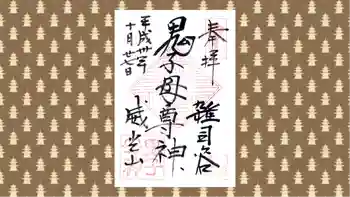 奉拝
雑司谷
鬼子母尊神
威光山
平成卅年
十月廿七日